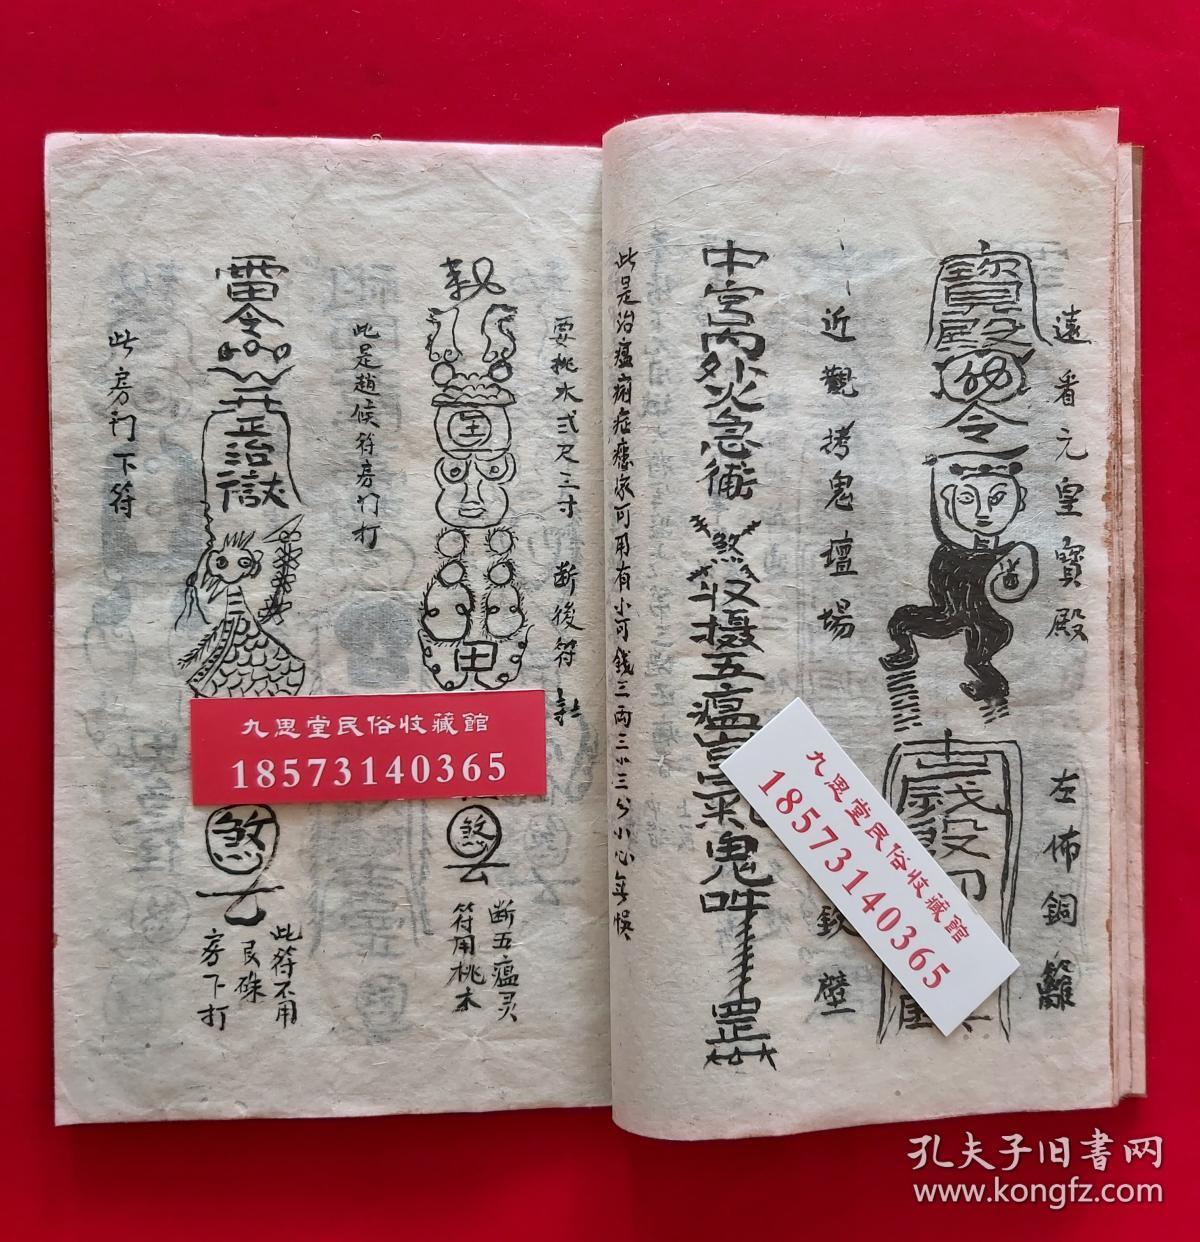 遠看元皇寶殿
左佈銅籬
寶殿
令
近觀拷鬼壇場
鉄壁
中宮丙外火急衛煞收摄五瘟
氣鬼吽
罡
此是治瘟
家可用有小可錢三両三小三分小心無悞
要桃木弍尺三寸
断後符
断五瘟灵
符用桃木
煞
此是趙候符房门打
雷令
正治獄
煞
此符不用
民硃
房下打
此房门下符
九思堂民俗收藏館
18573140365
九思堂民俗收藏館
18573140365
孔夫子旧書网
www.kongfz.com